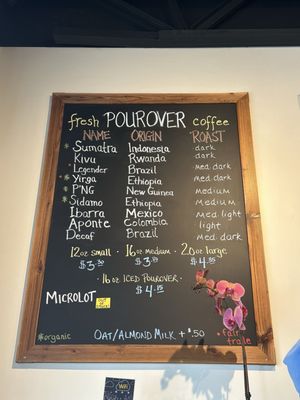 fresh POUROVER coffee
NAME ORIGIN ROAST
* Sumatra Indonesia dark
Kivu Rwanda dark
* Legender Brazil med. dark
* Yirga Ethiopia med dark
* PNG New Guinea medium
* Sidamo Ethiopia medium
Ibarra Mexico med light
Aponte Colombia light
Decaf Brazil med. dark
12oz small · 16oz medium · 20oz large
$3.30 $3.75 $4.55
16oz ICED POUROVER
$4.15
MICROLOT
*organic
OAT/ALMOND MILK + $.50
* fair trade *